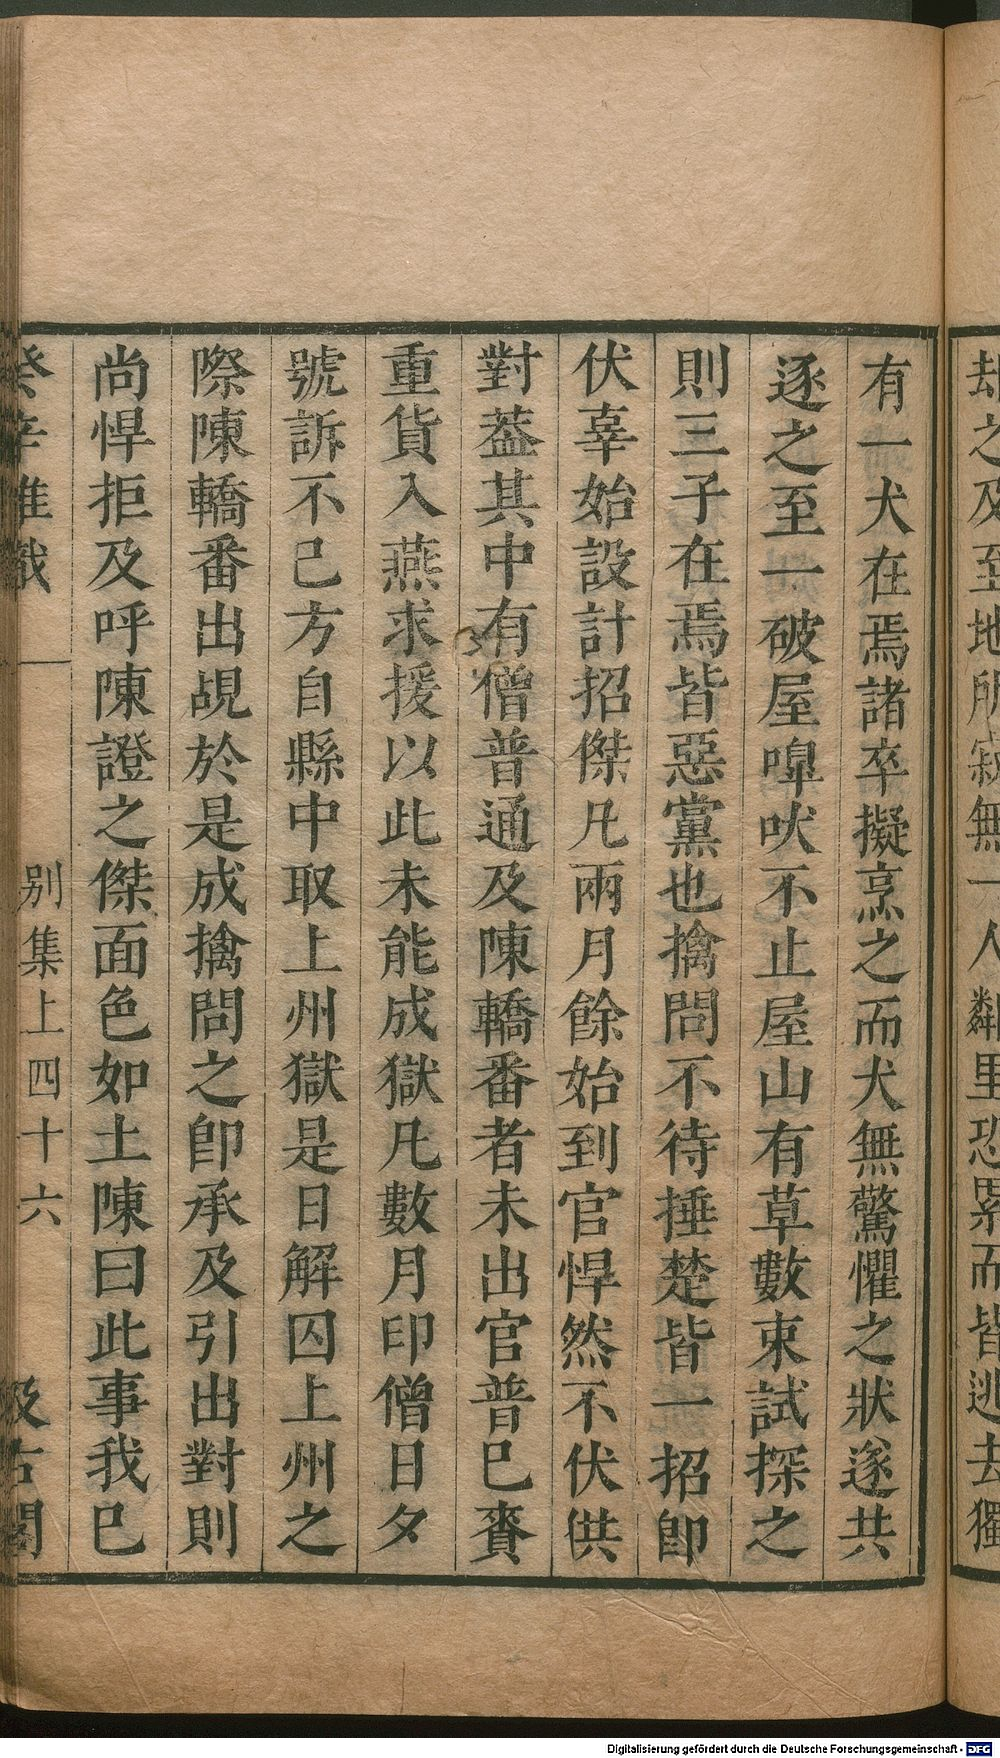 劫之及至地所寂無一人鄰里恐累而皆逃去獨
有一犬在焉諸卒擬烹之而犬無驚懼之狀遂共
逐之至一破屋嘷吠不止屋山有草數束試探之
則三子在焉皆惡黨也擒問不待捶楚皆一招卽
伏辜始設計招傑凢兩月餘始到官悍然不伏供
對葢其中有僧普通及陳轎番者未出官普巳賫
重貨入燕求援以此未能成獄凢數月印僧日夕
號訴不已方自縣中取上州獄是日解囚上州之
際陳轎番出覘於是成擒問之卽承及引出對則
尚悍拒及呼陳證之傑面色如土陳曰此事我巳
癸辛雜識
别集上四十六
汲古閣
Digitalisierung gefördert durch die Deutsche Forschungsgemeinschaft - DFG